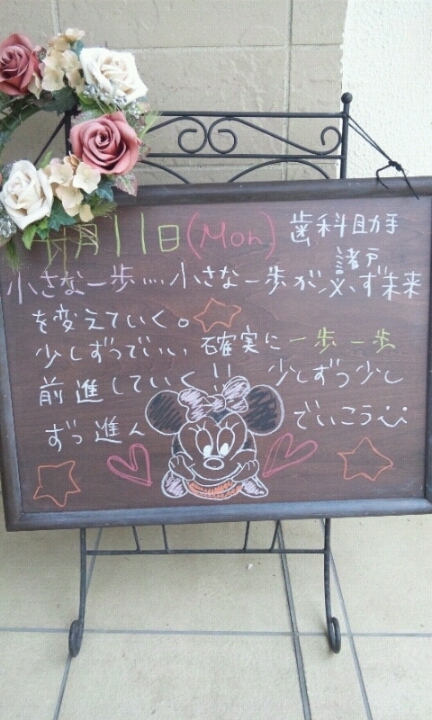 月11日(Mon) 歯科助手
諸戸
小さな一歩…小さな一歩が必ず未来
を変えていく。
少しずつでいい 確実に一歩一歩
前進していく!! 少しずつ少し
ずつ進んでいこう